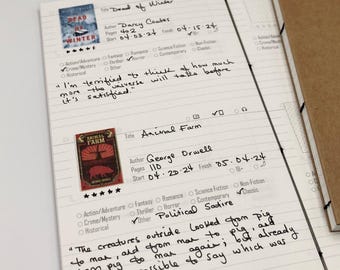 Title Dead of Winter
DEAD OF WINTER
Author Darcy Coates
Pages 402
Start 04·03·24 Finish 04·15·24
Action/Adventure Fantasy Romance Science Fiction Non-Fiction
Crime/Mystery Thriller Horror Contemporary Classic
Historical Other
"I'm terrified to think of how much
more the universe will take before
it's satisfied"
Title Animal Farm
ANIMAL FARM
Author George Orwell
Pages 110
Start 04·20·24 Finish 05·04·24
Action/Adventure Fantasy Romance Science Fiction Non-Fiction
Crime/Mystery Thriller Horror Contemporary Classic
Historical Other Political Satire
"The creatures outside looked from pig
to man, and from man to pig, and
from pig to man again; but already
say which was